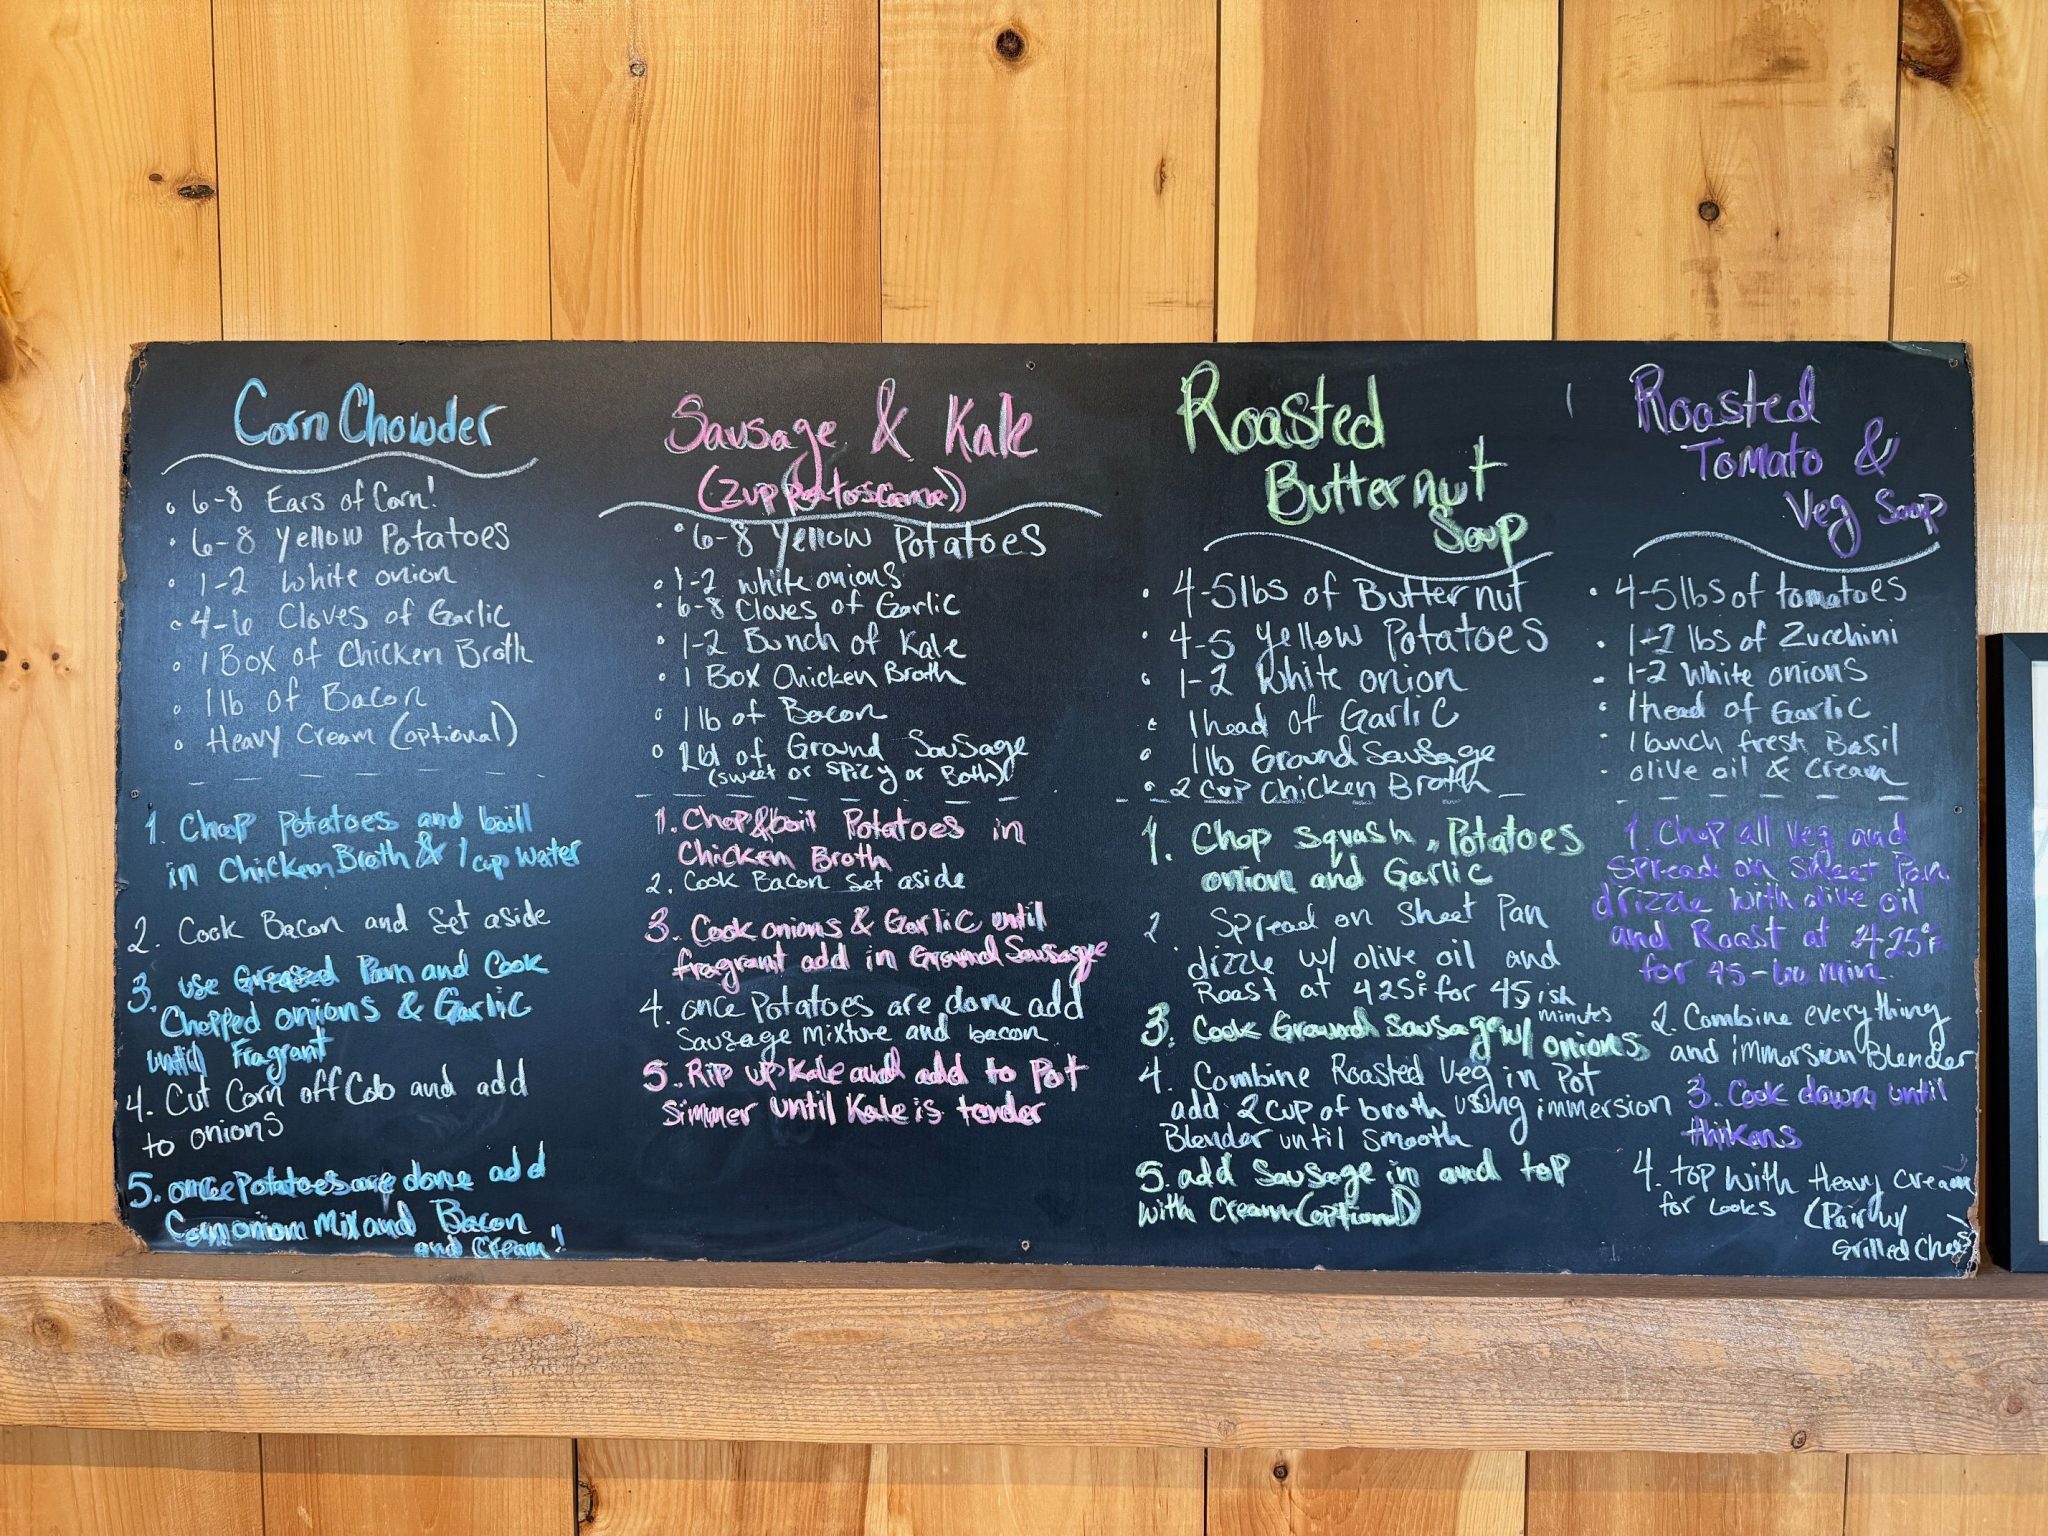 Corn Chowder
• 6-8 Ears of Corn!
• 6-8 Yellow Potatoes
• 1-2 White onion
• 4-6 Cloves of Garlic
• 1 Box of Chicken Broth
• 1 lb of Bacon
• Heavy Cream (optional)
1. Chop Potatoes and boill
in Chicken Broth & 1 cup Water
2. Cook Bacon and Set aside
3. use Greased Pan and Cook
Chopped onions & Garlic
until Fragrant
4. Cut Corn off Cob and add
to onions
5. once Potatoes are done add
Corn onion mix and Bacon
and Cream!
Sausage & Kale
(Zuppa
• 6-8 Yellow Potatoes
• 1-2 white onions
• 6-8 Cloves of Garlic
• 1-2 Bunch of Kale
• 1 Box Chicken Broth
• 1 lb of Bacon
• of Ground Sausage
(sweet or spicy or Both)
1. Chop & boil Potatoes in
Chicken Broth
2. Cook Bacon Set aside
3. Cook onions & Garlic until
fragrant add in Ground Sausage
4. once Potatoes are done add
Sausage mixture and bacon
5. Rip up Kale and add to Pot
Simmer until Kale is tender
Roasted
Butternut
Soup
• 4-5 lbs of Butternut
• 4-5 Yellow Potatoes
• 1-2 White onion
• 1 head of Garlic
• 1 lb Ground Sausage
• 2 cup Chicken Broth
1. Chop Squash, Potatoes
onion and Garlic
2. Spread on Sheet Pan
dizzle w/ olive oil and
Roast at 425°F for 45 ish
minutes
3. Cook Ground Sausage w/ onions
4. Combine Roasted Veg in Pot
add 2 cup of broth using immersion
Blender until Smooth
5. add Sausage in and top
with Cream (optional)
Roasted
Tomato &
Veg Soup
• 4-5 lbs of tomatoes
• 1-2 lbs of Zucchini
• 1-2 White onions
• 1 head of Garlic
• 1 bunch fresh Basil
• olive oil & Cream
1. Chop all Veg and
Spread on Sheet Pan
drizzle with olive oil
and Roast at 425°F
for 45-60 min.
2. Combine everything
and immersion Blender
3. Cook down until
thikens
4. top with Heavy Cream
for Looks (Pair w/
Grilled Chees)